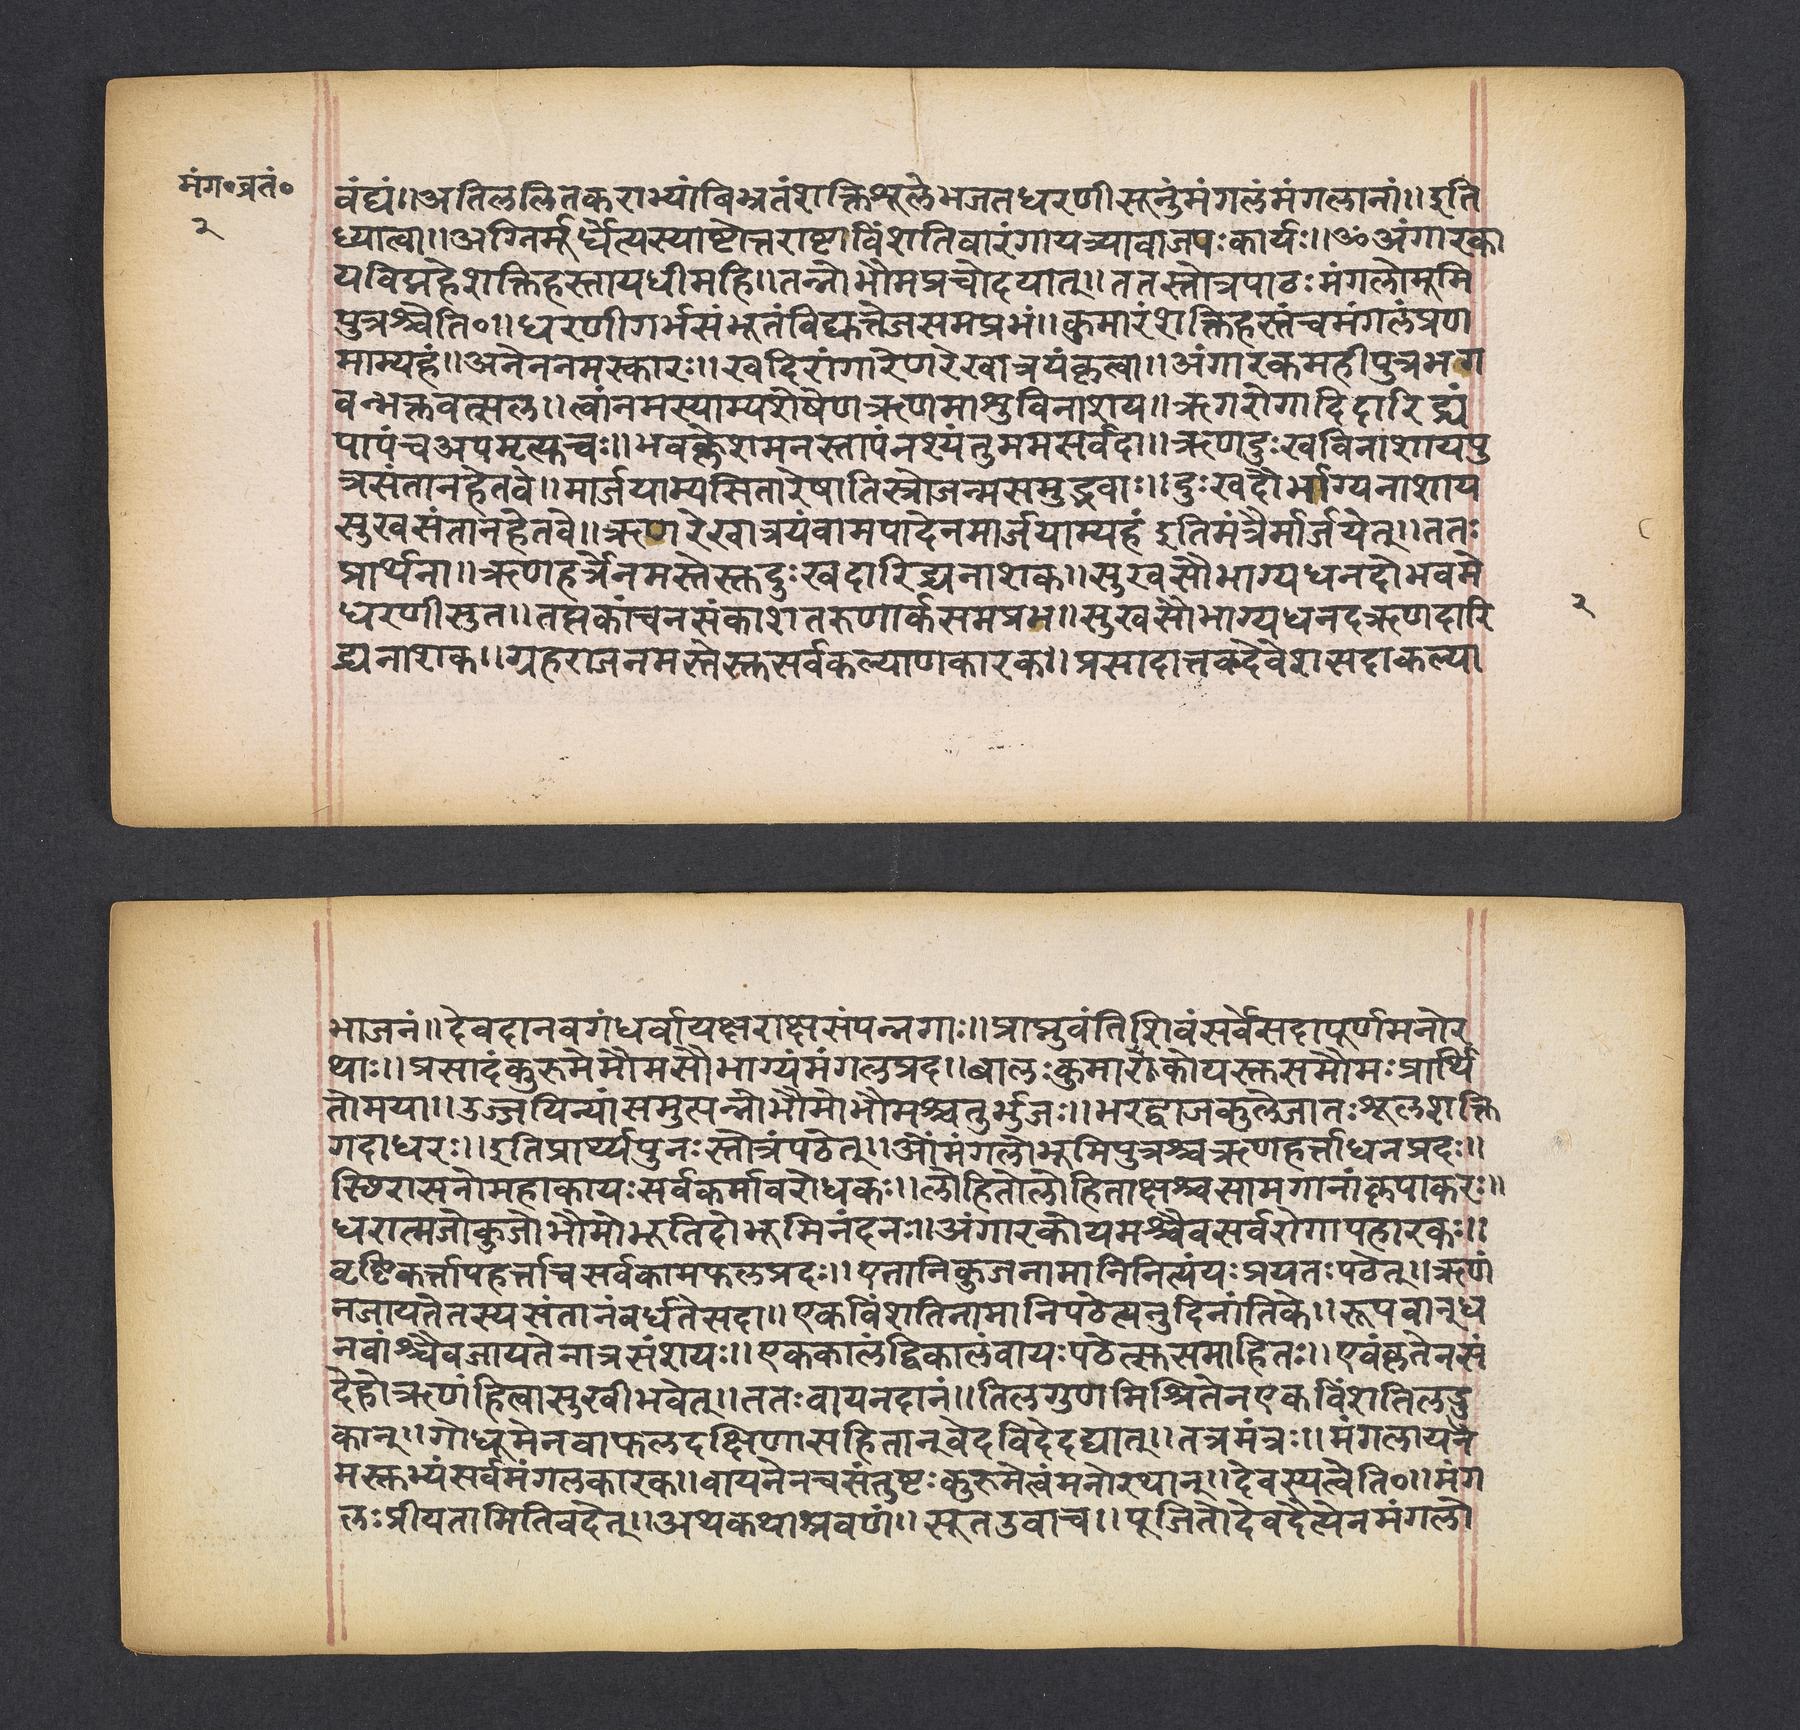 मंग॰व्रतं॰
२
वंद्यं॥अतिललितकराभ्यांबिभ्रतंशक्तिशूलेभजतधरणीसूनुंमंगलंमंगलानां॥इति
ध्यात्वा॥अग्निर्मूर्धेत्यस्याष्टोत्तराष्टाविंशतिवारंगायत्र्यावाजपःकार्यः॥ॐअंगारका
यविद्महेशक्तिहस्तायधीमहि॥तन्नोभौमप्रचोदयात्॥ततस्तोत्रपाठःमंगलोभूमि
पुत्रश्चेति॰॥धरणीगर्भसंभूतंविद्युत्तेजसमप्रभं॥कुमारंशक्तिहस्तंचमंगलंप्रण
माम्यहं॥अनेननमस्कारः॥खदिरांगारेणरेखात्रयंकृत्वा॥अंगारकमहीपुत्रभग
वन्भक्तवत्सल॥त्वांनमस्याम्यशेषेणऋणमाशुविनाशय॥ऋगरोगादिदारिद्र्यं
पापंचअपमृत्युचः॥भवक्लेशमनस्तापंनश्यंतुममसर्वदा॥ऋणदुःखविनाशायपु
त्रसंतानहेतवे॥मार्जयाम्यसितारेषातिस्त्रोजन्मसमुद्भवाः॥दुःखदौर्भाग्यनाशाय
सुखसंतानहेतवे॥ऋणरेखात्रयंवामपादेनमार्जयाम्यहं इतिमंत्रैर्मार्जयेत्॥ततः
प्रार्थना॥ऋणहर्त्रेनमस्तेस्तुदुःखदारिद्र्यनाशक॥सुखसौभाग्यधनदोभवमे
धरणीसुत॥तप्तकांचनसंकाशतरुणार्कसमप्रभ॥सुखसौभाग्यधनदऋणदारि
द्र्यनाशक॥ग्रहराजनमस्तेस्तुसर्वकल्याणकारक॥प्रसादात्तवदेवेशसदाकल्या
२
भाजनं॥देवदानवगंधर्वायक्षराक्षसंपन्नगाः॥प्राप्नुवंतिशिवंसर्वेसदापूर्णमनोर
थाः॥प्रसादंकुरुमेभौमसौभाग्यंमंगलप्रद॥बालःकुमारोकोयस्तुसभौमःप्रार्थि
तोमया॥उज्जयिन्यांसमुत्पन्नोभौमोभौमश्चतुर्भुजः॥भरद्वाजकुलेजातःशूलशक्ति
गदाधरः॥इतिप्रार्थ्यपुनःस्तोत्रंपठेत्॥ओंमंगलोभूमिपुत्रश्चऋणहर्त्ताधनप्रदः॥
स्थिरासनोमहाकायःसर्वकर्मावरोधकः॥लोहितोलोहिताक्षश्चसामगानांकृपाकरः॥
धरात्मजोकुजोभौमोभूतिदोभूमिनंदनः॥अंगारकोयमश्चैवसर्वरोगापहारकः॥
वृष्टिकर्त्तापहर्त्ताचसर्वकामफलप्रदः॥एतानिकुजनामानिनित्यंयःप्रयतःपठेत्॥ऋणं
नजायतेतस्यसंतानंवर्धतेसदा॥एकविंशतिनामानिपठेत्यनुदिनांतिके॥रूपवान्ध
नवांश्चैवजायतेनात्रसंशयः॥एककालंद्विकालंवायःपठेत्सुसमाहितः॥एवंकृतेनसं
देहोऋणंहित्वासुखीभवेत्॥ततःवायनदानं॥तिलगुणमिश्रितेनएकविंशतिलड्डु
कान्॥गोधूमेनवाफलदक्षिणासहितान्वेदविदेदद्यात्॥तत्रमंत्रः॥मंगलायन
मस्तुभ्यंसर्वमंगलकारक॥वायनेनचसंतुष्टःकुरुमेत्वंमनोरथान्॥देवस्यत्वेति॰॥मंग
लःप्रीयतामितिवदेत्॥अथकथाश्रवणं॥सूतउवाच॥पूजितोदेवदैत्येनमंगलो